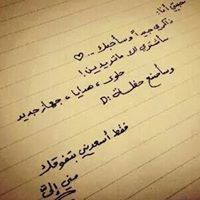 حبيبتي أنا:
ذاكري جيداً وسأحبك ... ♡
سأشتري لك ما تريدين!
حلوى، هدايا، جهاز جديد
وسأصنع حفلة :D
فقط أسعديني بتفوقك
مني إليّ